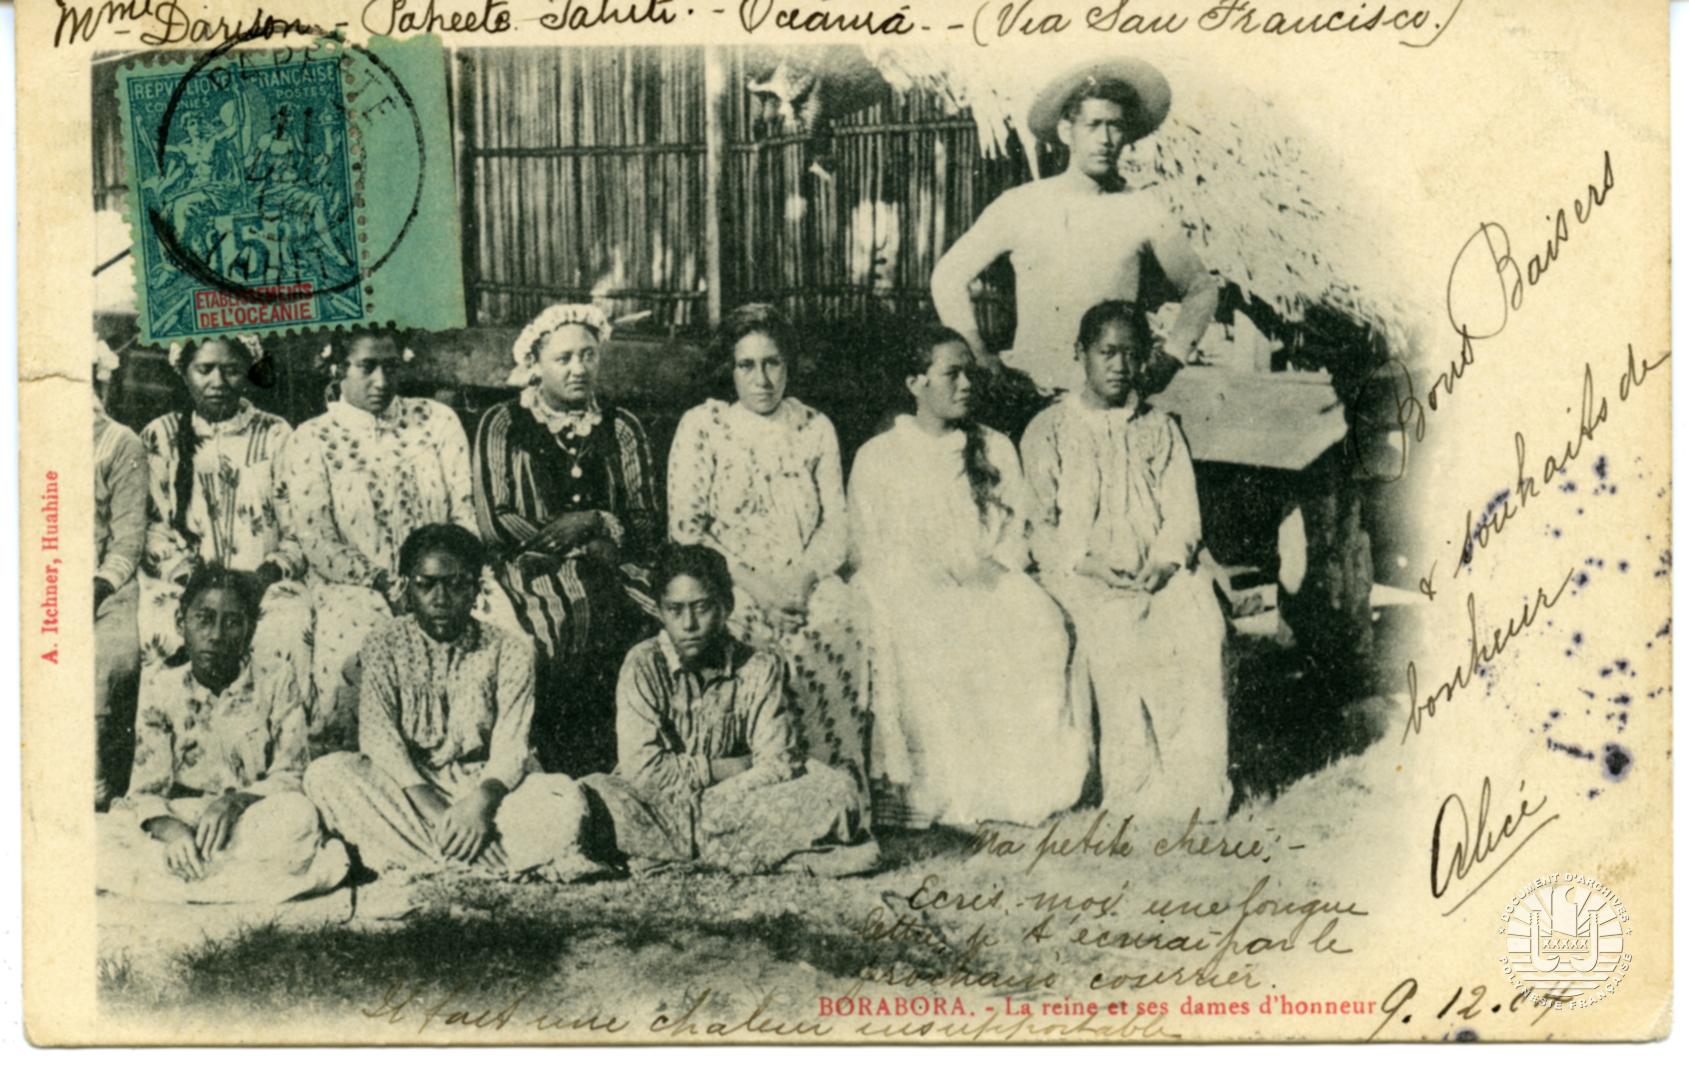 Mme Darison - Papeete Tahiti. - Océania. - (Via San Francisco.)
REPVBLIQVE FRANÇAISE
COLONIES POSTES
PAPEETE
11
DEC.
TAHITI
ETABLISSEMENTS
DE L'OCÉANIE
A. Itchner, Huahine
Bons Baisers
& souhaits de
bonheur
Alice
Ma petite chérie, -
Ecris moi une longue
lettre, je t'écrirai par le
prochain courrier.
Il fait une chaleur insupportable
BORABORA. - La reine et ses dames d'honneur
9.12.04
DOCUMENT D'ARCHIVES
POLYNÉSIE FRANÇAISE